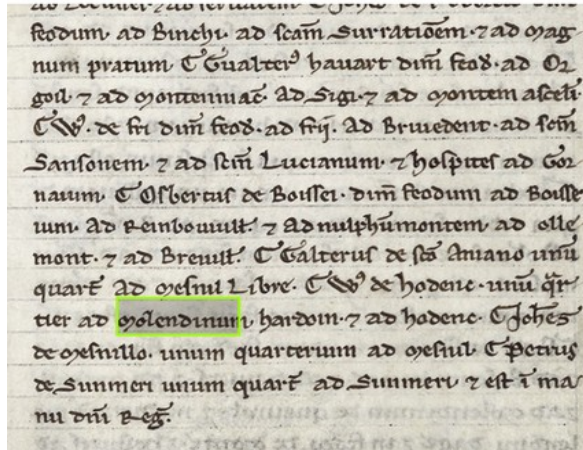 feodum ad Binchi ad scām Surratiōem ⁊ ad mag
num pratum ⁊ Gualterꝰ havart dim̄ feod· ad Or
goil ⁊ ad Montenmac̄ Ad Sigi· ⁊ ad montem asceli·
W· de fri dim̄ feod· ad frij· Ad Bruiedent· ad scm̄
Sansonem· ⁊ ad scm̄ Lucianum· ⁊ hospites ad Gor
naium· Osbertus de Boissei· dim̄ feodum ad Boisse
ium· Ad Reinbowill̄· ⁊ Adnulphūmontem ad olle
mont· ⁊ ad Brevill̄· Galterus de sc̄o Aniano unū
quart̄ Ad Mesnil Libre· W̄ de hodenc· unū qr̄
tier ad Molendinum hardoin· ⁊ ad hodenc· Joh̄es
de Mesnillo· unum quarterium ad Mesnil· Petrus
de Summeri unum quart̄ ad Summeri· ⁊ est ī ma
nu dn̄i Reḡ·